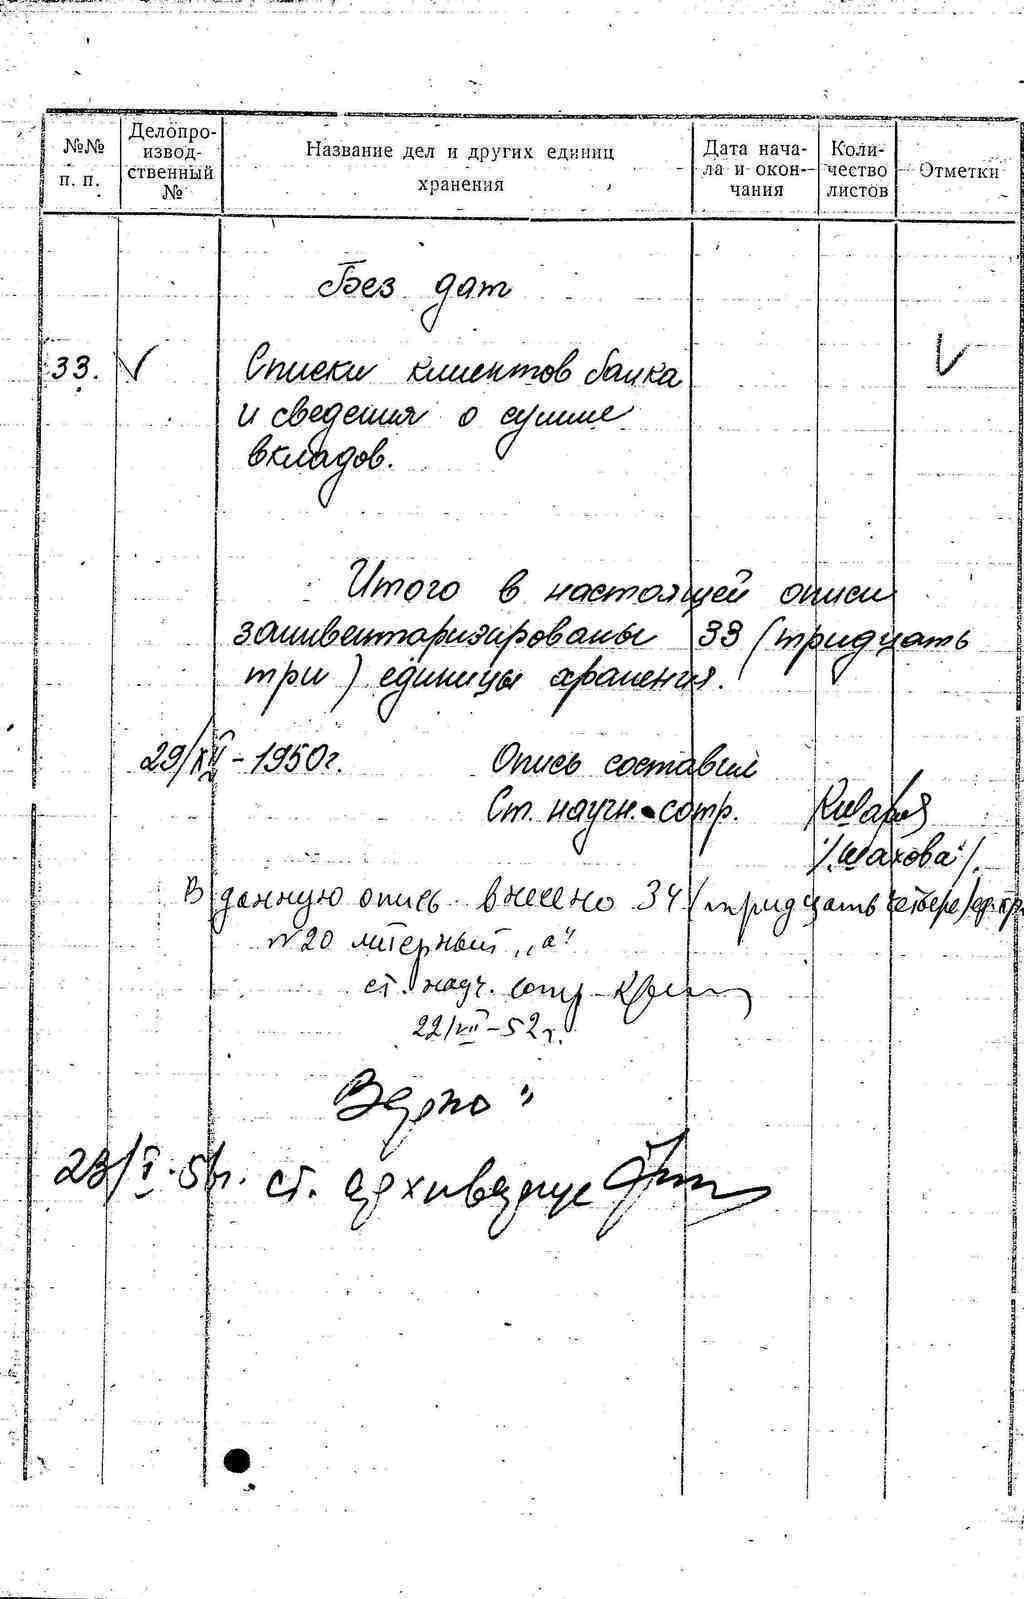 №№ п. п.
Делопро-
извод-
ственный
№
Название дел и других единиц
хранения
Дата нача-
ла и окон-
чания
Коли-
чество
листов
Отметки
Без дат
33. V Списки клиентов банка V
и сведения о сумме
вкладов.
Итого в настоящей описи
заинвентаризированы 33 (тридцать
три) единицы хранения.
29/XII-1950г. Опись составил
Ст. научн. сотр.
/Шахова/.
В данную опись внесено 34 /тридцать четыре/ ед. хр.
№20 литерный „а"
ст. науч. сотр.
22/VII-52г.
Верно:
ст. архивариус